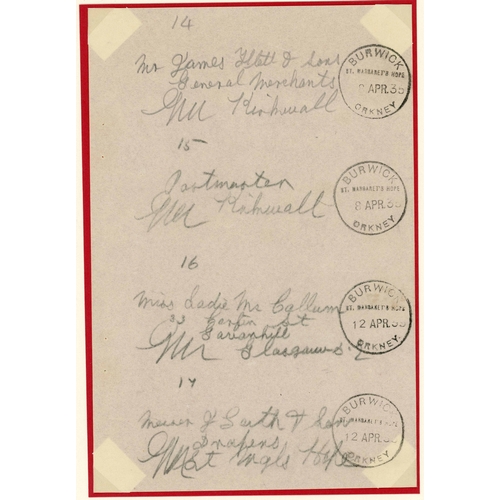 14
Mr James Flett & Sons
General Merchants
Kirkwall
BURWICK
ST. MARGARET'S HOPE
8 APR.35
ORKNEY
15
Postmaster
Kirkwall
BURWICK
ST. MARGARET'S HOPE
8 APR.35
ORKNEY
16
Miss Sadie Mc Callum
33 St
Govanhill
Glasgow
BURWICK
ST. MARGARET'S HOPE
12 APR.35
ORKNEY
17
Messrs J & Son
Drapers
St Mgts Hope
BURWICK
ST. MARGARET'S HOPE
12 APR.35
ORKNEY